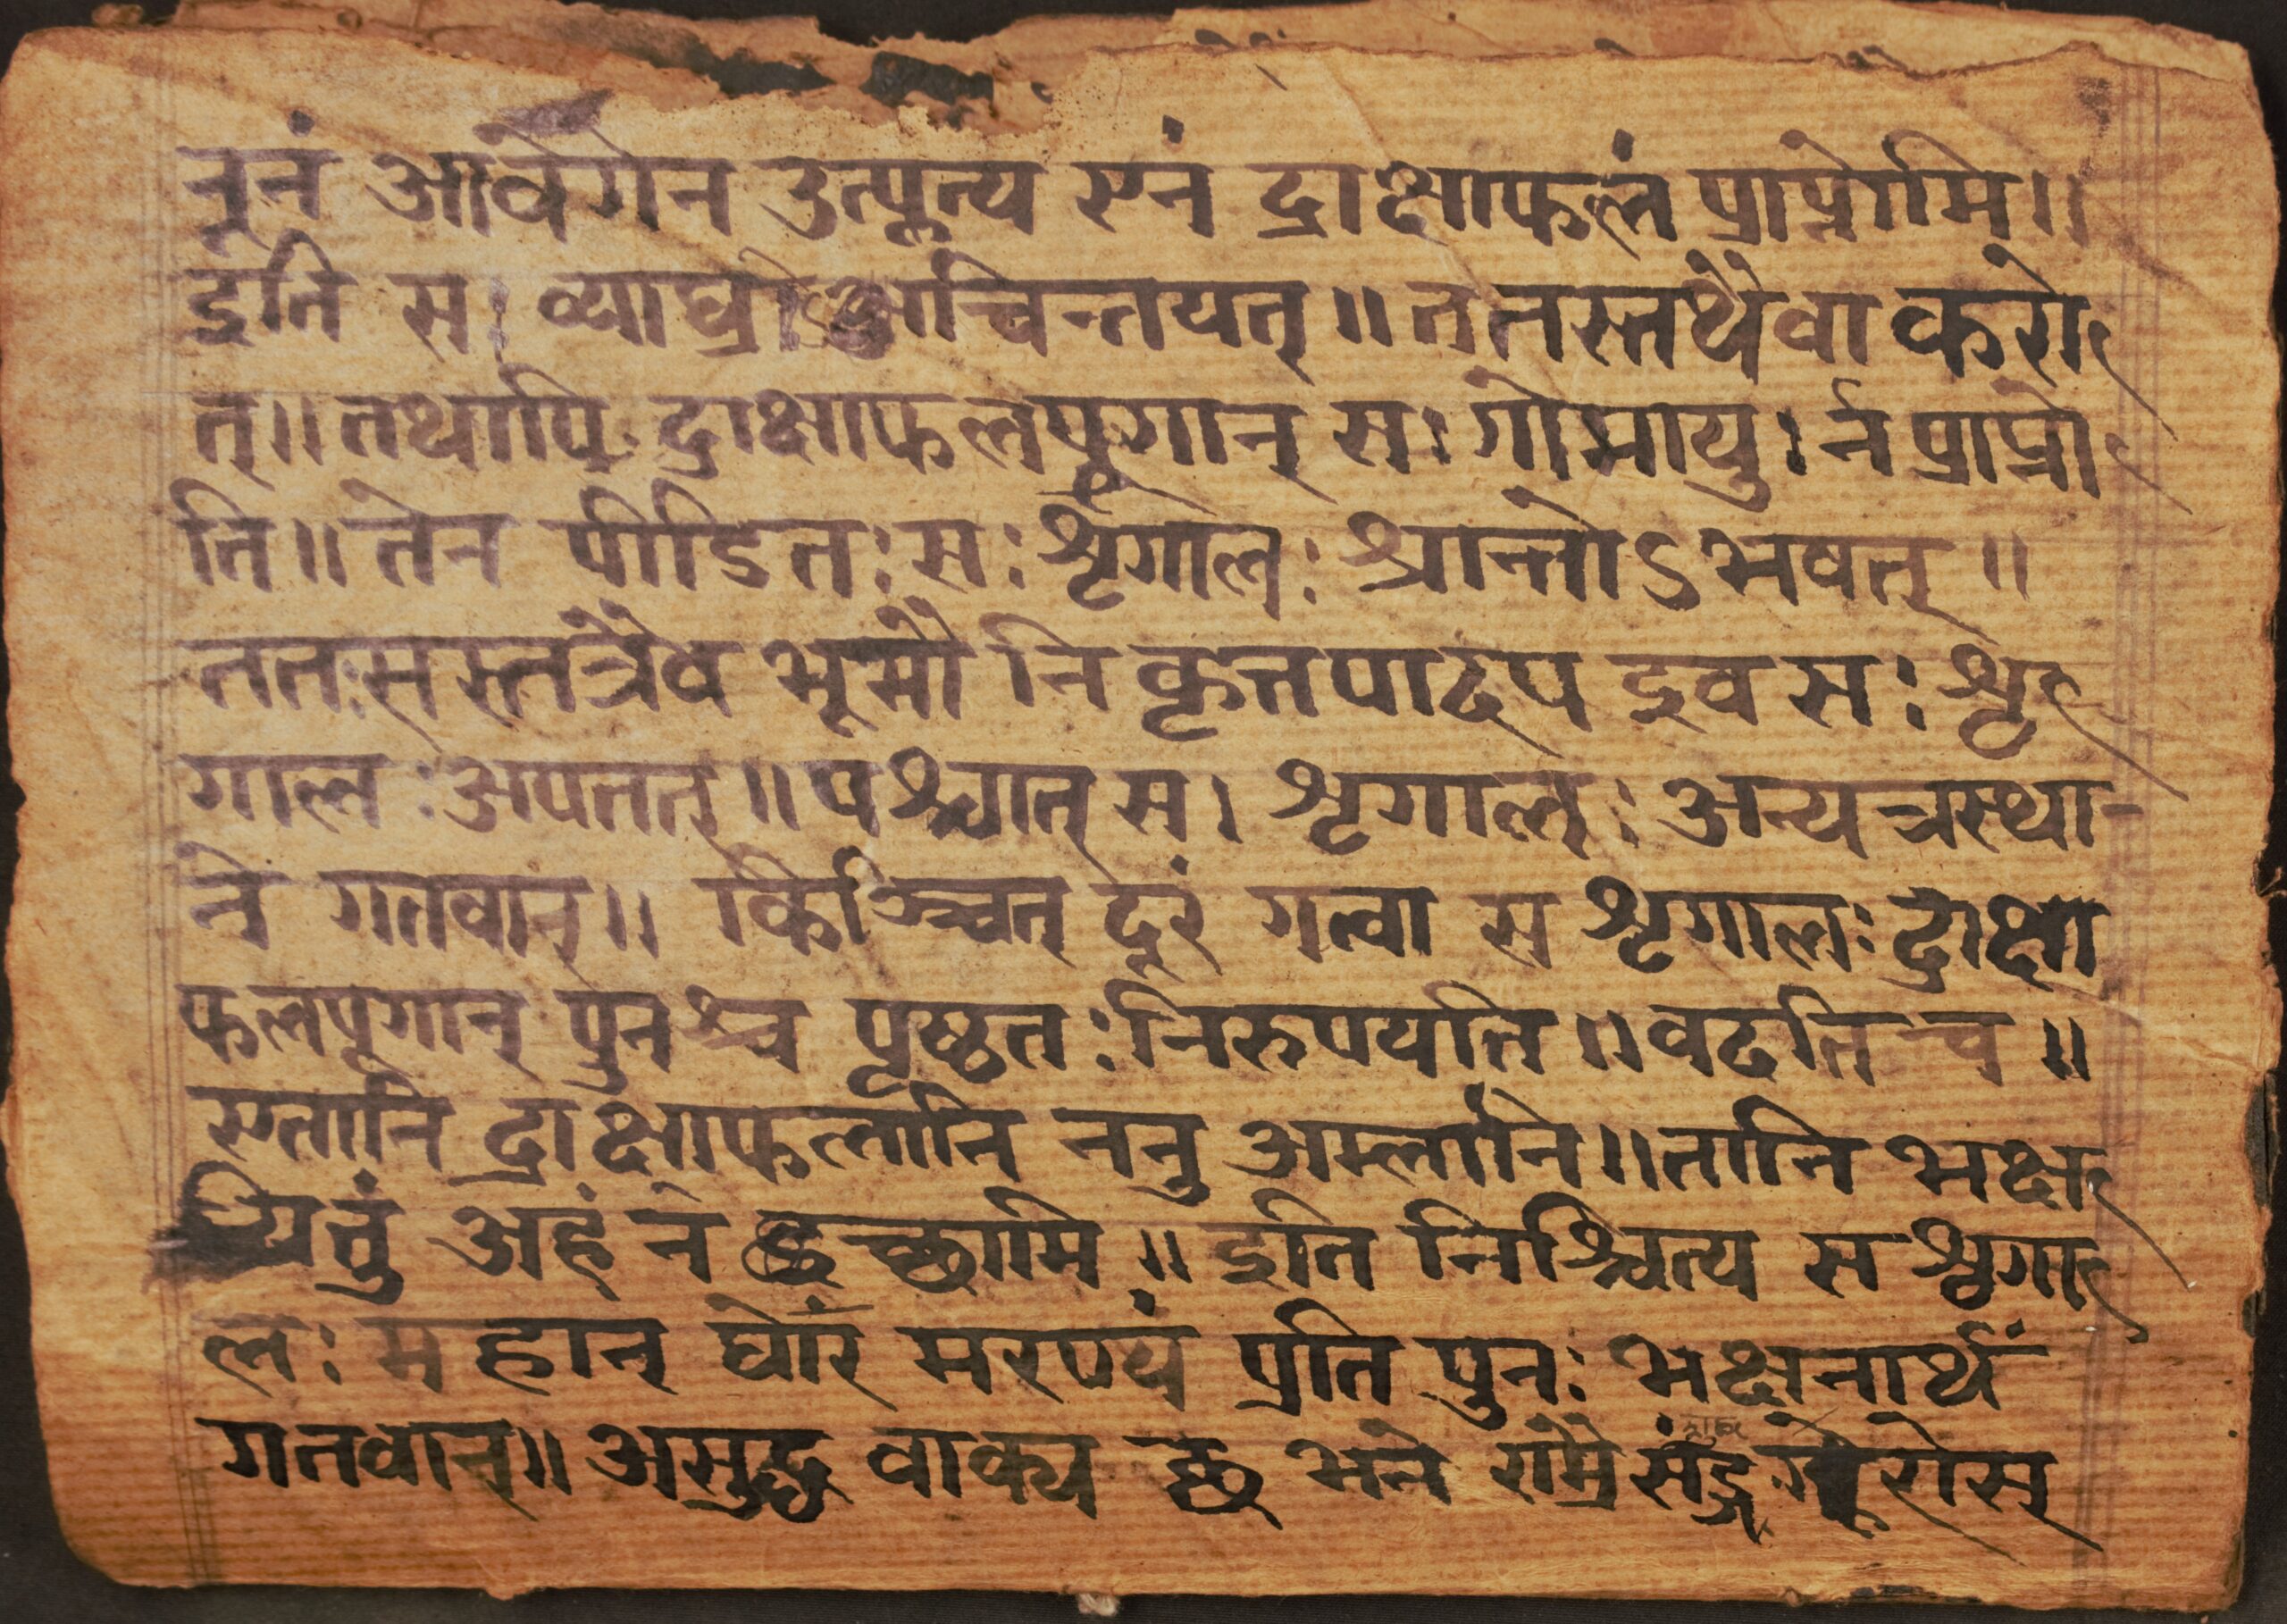 नूनं आवेगेन उत्प्लुत्य एनं द्राक्षाफलं प्राप्नोमि॥
इति स। व्याघ्रो अचिन्तयत्॥ ततस्तथैवा करो
त्॥ तथापि द्राक्षाफलपूगान् स। गोमायु। र्न प्राप्नो
ति॥ तेन पीडितः सः शृगालः श्रान्तोऽभवत्॥
ततःसस्तत्रैव भूमौ निकृत्तपादप इव सः शृ
गालः अपतत्॥ पश्चात् स। शृगालः अन्यत्रस्था-
ने गतवान्॥ किञ्चित् दूरं गत्वा स शृगालः द्राक्षा
फलपूगान् पुनश्च पृष्ठतः निरुपयति॥ वदति च॥
एतानि द्राक्षाफलानि ननु अम्लानि॥ तानि भक्ष
यितुं अहं न इच्छामि॥ इति निश्चित्य स शृगा
लः महान् घोरं मरण्यं प्रति पुनः भक्षनार्थं
गतवान्॥ असुद्ध वाक्य छ भने